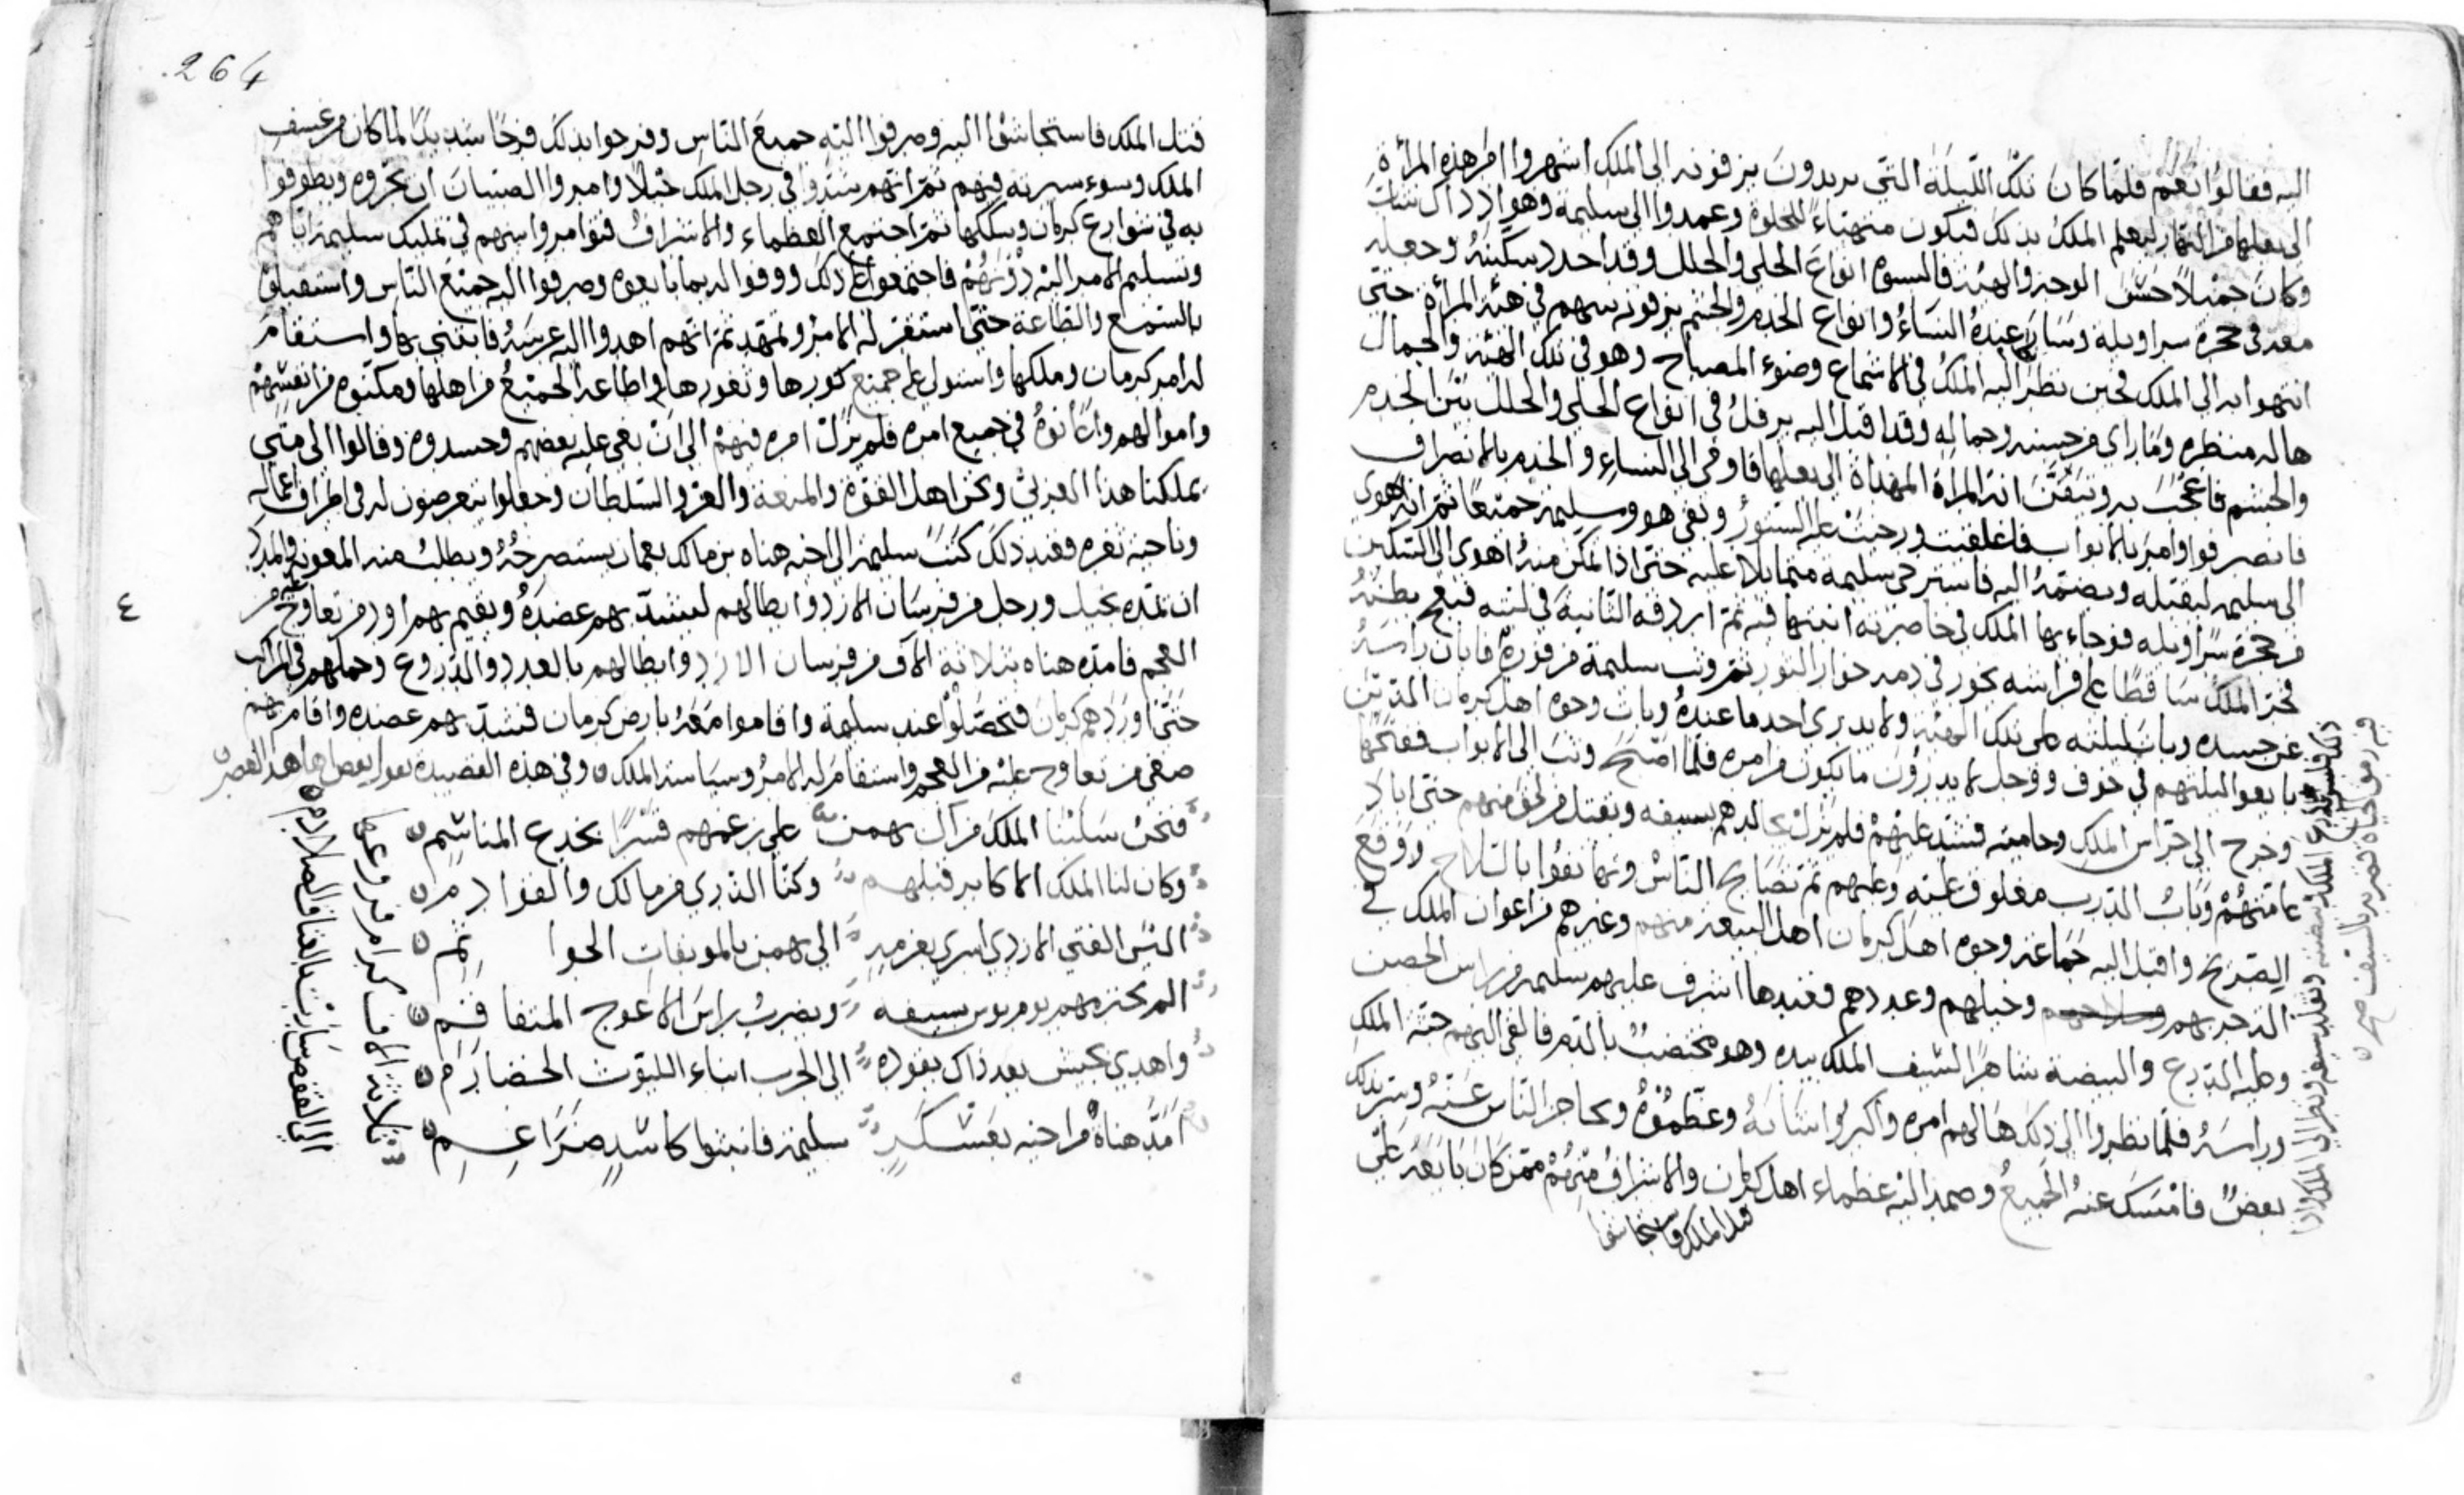 اليه فقالوا نعم فلما كان تلك الليلة التي يريدون يزفونه الى الملك اشهروا امر هذه المرأة
الى بعلها من النهار ليعلم الملك بذلك فيكون متهياء للخلوة وعمدوا الى سليمه وهو اذ ذاك شاب
وكان جميلا حسن الوجه والهيئه فالبسوه انواع الحلي والحلل وقد احد سكينه وجعله
معه في حجزة سراويله وسار عنده النساء وانواع الخدم والحشم يزفونه بينهم في هيئة المرأة حتى
انتهوا به الى الملك فحين نظر اليه الملك في الاشماع وضوء المصباح وهو في تلك الهيئه والجمال
هاله منظره وما راى من حسنه وجماله وقد اقبل اليه يرفل في انواع الحلي والحلل بين الخدم
والحشم فاعجب به وتيقن انه المراة المهداة الى بعلها فاومى الى النساء والخدم بالانصراف
فانصرفوا وامر بالابواب فاغلقت ورخيت عليه الستور وبقي هو وسليمه جميعا ثم انه اهوى
الى سليمه ليقبله ويضمه اليه فاسترخى سليمه متمايلا عليه حتى اذا تمكن منه اهوى الى السكين
من حجزة سراويله فوجاء بها الملك في خاصرته اثبتها فيه ثم اردفه الثانية في لبته فبعج بطنه
فخر الملك ساقطا على فراشه يخور في دمه خوار الثور ثم وثب سليمة من فوره فابان راسه
عن جسده وبات ليلته على تلك الهيئه ولا يدرى احد ما عنده وبات وجوه اهل كرمان الذين
بايعوا ليلتهم في خوف ووجل لا يدرون ما يكون من امره فلما اصبح وثب الى الابواب ففتحها
وخرج الى حراس الملك وحاميته فشد عليهم فلم يزل يجالدهم بسيفه ويقتل من لحق منهم حتى اباد
عامتهم وباب الدرب مغلوق عليه وعليهم ثم تصايح الناس وتهايفوا بالسلاح ووقع
الصريخ واقبل اليه جماعة وجوه اهل كرمان اهل البيعه منهم وغيرهم من اعوان الملك في
وخيلهم وعددهم فعندها اشرف عليهم سليمه من راس الحصن
وعليه الدرع والبيضة شاهرا السيف الملك بيده وهو مختضب بالدم فالقى اليهم جثة الملك
وراسه فلما نظروا الى ذلك هالهم امره واكبروا شانه وعظموه وتحاجز الناس عنه وستر بذلك
بعض فامسك عنه الجميع وصمد اليه عظماء اهل كرمان والاشراف منهم ممن كان بايعه على
قتل الملك فاستجاشوا
264
قتل الملك فاستجاشوا اليه وصرفوا اليه جميع الناس وفرحوا بذلك فرحا شديدا لما كان من عسف
الملك وسوء سيرته فيهم ثم انهم شدوا في رجل الملك حبلا وامروا الصبيان ان يجروه ويطوفوا
به في شوارع كرمان وسككها ثم اجتمع العظماء والاشراف فتوامروا بينهم في تمليك سليمة اياهم
وتسليم الامر اليه دونهم فاجتمعوا على ذلك ووفوا له بما بايعوه وصرفوا اليه جميع الناس واستقبلوه
بالسمع والطاعة حتى استقر له الامر وتمهد ثم انهم اهدوا اليه عرسه فابتنى بها واستقام
له امر كرمان وملكها واستولى على جميع كورها وثغورها واطاعه الجميع من اهلها ومكنوه من انفسهم
واموالهم واعانوه في جميع امره فلم يزل امره فيهم الى ان بغى عليه بعضهم وحسدوه وقالوا الى متى
يملكنا هذا العربي ونحن اهل القوة والمنعة والعز والسلطان وجعلوا يتعرضون له في اطراف اعماله
وناحية ثغره فعند ذلك كتب سليمة الى اخيه هناه بن مالك بعمان يستصرخه ويطلب منه المعونة والمدد
ان يمده بخيل ورجل من فرسان الازد وابطالهم ليشد بهم عضده ويقيم بهم اود من تعاوج عليه من
العجم فامده هناه بثلاثة الاف من فرسان الازد وابطالهم بالعدد والدروع وحملهم في المراكب
حتى اوردهم كرمان فتحصلوا عند سليمة واقاموا معه بارض كرمان فشد بهم عضده واقام بهم
صغى من تعاوج عليه من العجم واستقام له الامر وسياسة الملك وفي هذه القصيدة يقول بعض
فنحن سلبنا الملك من آل بهمن على رغمهم قسرا بجدع المناشم
وكان لنا الملك الاكابر قبلهم وكنا الذرى من مالك والقوادم
اليس الفتى الازدي اسرى بعزمه الى بهمن بالموبقات الحوا ثم
الم يخزهم يوم بوس بسيفه ويضرب راس الاعوج المتفاقم
واهدى بجيش بعد ذاك يقوده الى الحرب ابناء الليوث الخضارم
امد هناة من اخيه بعسكر سليمة فانبثوا كاسد ضراغم
ثلاثة الاف كرام
الى القفص سارت بالعتاق الصلادم
٤